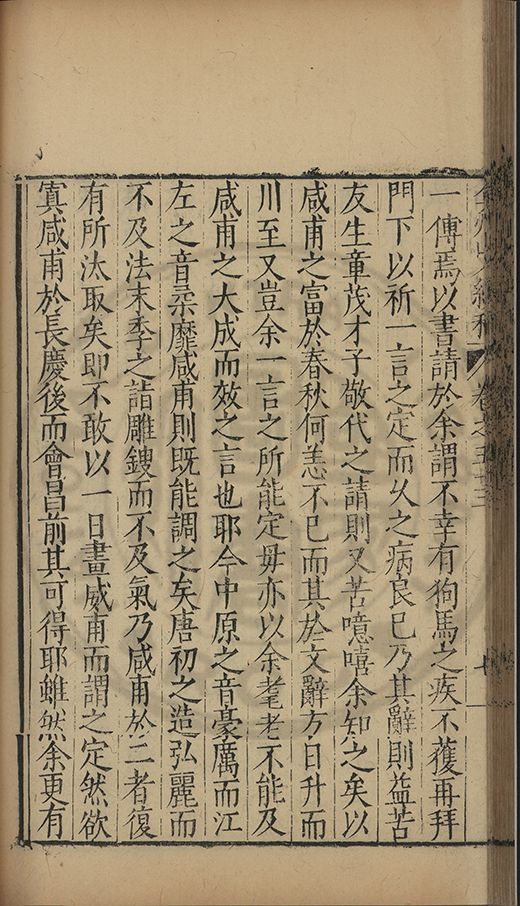 一傳焉以書請於余謂不幸有狗馬之疾不獲再拜
門下以祈一言之定而乆之病良已乃其辭則益苦
友生童茂才子敬代之請則又苦噫嘻余知之矣以
咸甫之富於春秋何恙不已而其於文辭方日升而
川至又豈余一言之所能定毋亦以余耄老不能及
咸甫之大成而效之言也耶今中原之音豪厲而江
左之音柔靡咸甫則既能調之矣唐初之造弘麗而
不及法末季之詣雕鎪而不及氣乃咸甫於二者復
有所汰取矣即不敢以一日畫咸甫而謂之定然欲
寘咸甫於長慶後而會昌前其可得耶雖然余更有
卷之五十三